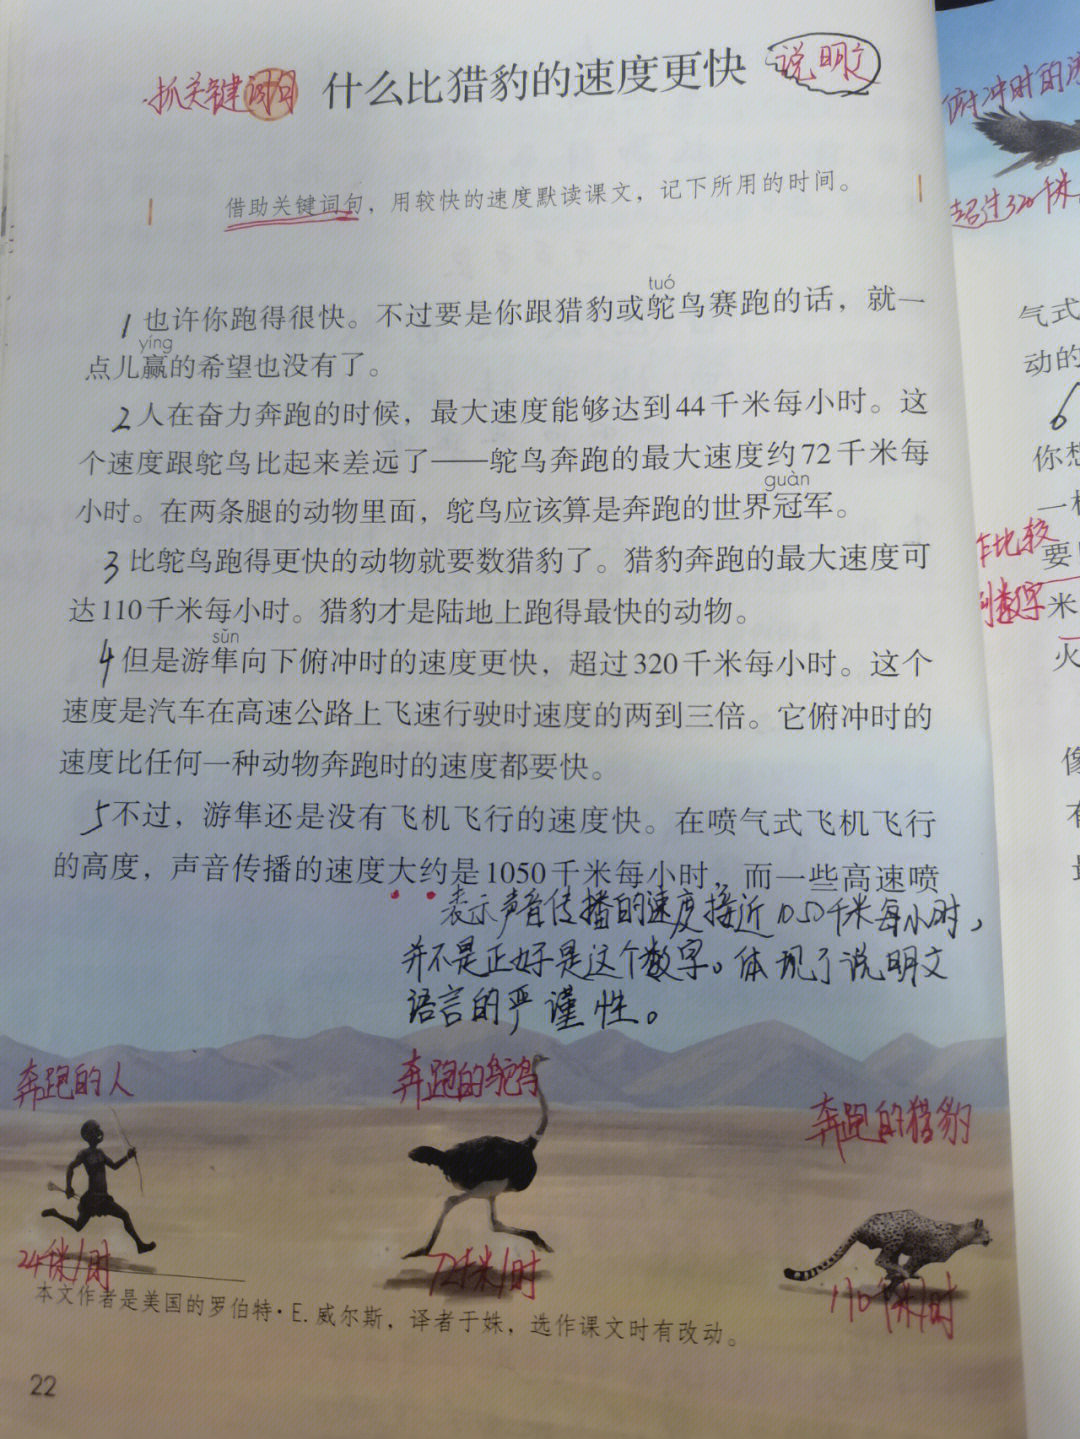 抓关键词句 什么比猎豹的速度更快 说明文
借助关键词句，用较快的速度默读课文，记下所用的时间。
tuó
1 也许你跑得很快。不过要是你跟猎豹或鸵鸟赛跑的话，就一
yíng
点儿赢的希望也没有了。
2 人在奋力奔跑的时候，最大速度能够达到44千米每小时。这
个速度跟鸵鸟比起来差远了——鸵鸟奔跑的最大速度约72千米每
guàn
小时。在两条腿的动物里面，鸵鸟应该算是奔跑的世界冠军。
3 比鸵鸟跑得更快的动物就要数猎豹了。猎豹奔跑的最大速度可
达110千米每小时。猎豹才是陆地上跑得最快的动物。
sǔn
4 但是游隼向下俯冲时的速度更快，超过320千米每小时。这个
速度是汽车在高速公路上飞速行驶时速度的两到三倍。它俯冲时的
速度比任何一种动物奔跑时的速度都要快。
5 不过，游隼还是没有飞机飞行的速度快。在喷气式飞机飞行
的高度，声音传播的速度大约是1050千米每小时，而一些高速喷
表示声音传播的速度接近1050千米每小时，
并不是正好是这个数字。体现了说明文
语言的严谨性。
奔跑的人
奔跑的鸵鸟
奔跑的猎豹
24千米/时
72千米/时
110千米/时
本文作者是美国的罗伯特·E.威尔斯，译者于姝，选作课文时有改动。
22
俯冲时的
超过320千米
气式
动的
6
你想
一样
作比较
要
列数字
米
灭
像
有